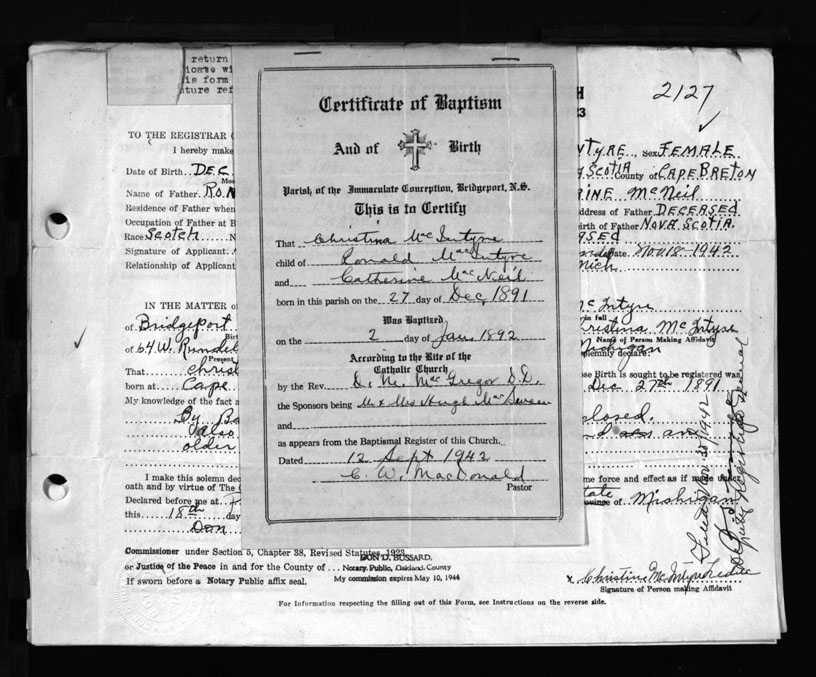 return
icate wi
is form
ture ref
2127
TO THE REGISTRAR
I hereby make
Date of Birth DEC.
Name of Father RON
Residence of Father when
Occupation of Father at B
Race Scotch
Signature of Applicant
Relationship of Applicant
IN THE MATTER o
of Bridgeport
of 64 W. Rundel
Present
That Christ
born at Cape
My knowledge of the fact a
By Ba
also
older
I make this solemn dec
oath and by virtue of The
Declared before me at
this 18th day
Don
Certificate of Baptism
And of Birth
Parish of the Immaculate Conception, Bridgeport, N.S.
This is to Certify
That Christina McIntyre
child of Ronald MacIntyre
and Catherine MacNeil
born in this parish on the 27 day of Dec, 1891
Was Baptized
on the 2 day of Jan. 1892
According to the Rite of the
Catholic Church
by the Rev. D. M. MacGregor D.D.
the Sponsors being Mr & Mrs Hugh
and
as appears from the Baptismal Register of this Church.
Dated 12 Sept 1942
C. W. MacDonald
Pastor
H
23
NTYRE Sex FEMALE
SCOTIA County of CAPE BRETON
RINE McNEIL
ddress of Father DECEASED
irth of Father NOVA SCOTIA
ASED
Date Nov 18 1942
Mich
McIntyre
in full
hristina McIntyre
Name of Person Making Affidavit
Michigan
olemnly declare:
se Birth is sought to be registered was
Dec 27th 1891
closed.
me force and effect as if made under
State
ovince of Michigan
Commissioner under Section 5, Chapter 38, Revised Statutes, 1923
or Justice of the Peace in and for the County of
If sworn before a Notary Public affix seal.
DON D. BUSSARD,
Notary Public, Oakland, County
My commission expires May 10, 1944
x Christina McIntyre
Signature of Person making Affidavit
For Information respecting the filling out of this Form, see Instructions on the reverse side.